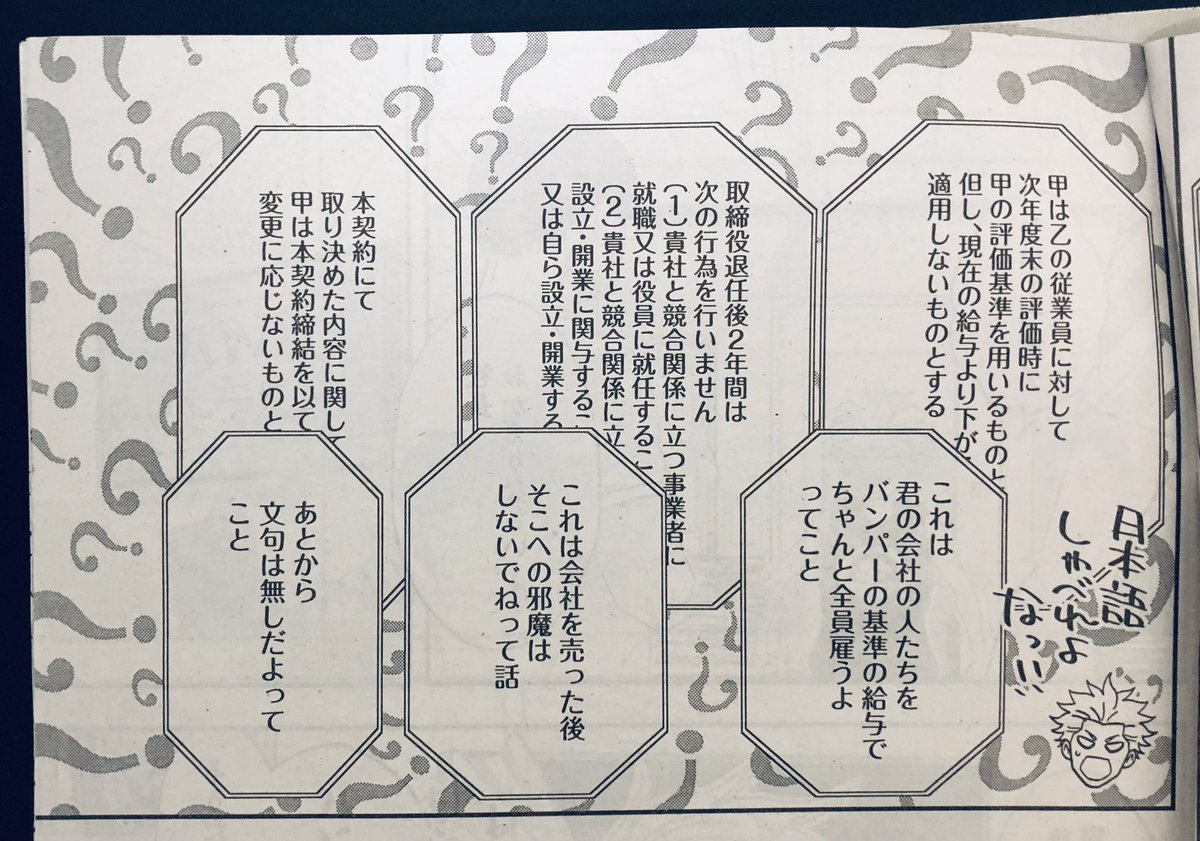 甲は乙の従業員に対して
次年度末の評価時に
甲の評価基準を用いるものと
但し、現在の給与より下が
適用しないものとする
日本語
しゃべれよ
なっ!!
これは
君の会社の人たちを
バンパーの基準の給与で
ちゃんと全員雇うよ
ってこと
取締役退任後2年間は
次の行為を行いません
(1)貴社と競合関係に立つ事業者に
就職又は役員に就任するこ
(2)貴社と競合関係に立
設立・開業に関与するこ
又は自ら設立・開業する
これは会社を売った後
そこへの邪魔は
しないでねって話
本契約にて
取り決めた内容に関して
甲は本契約締結を以て
変更に応じないものと
あとから
文句は無しだよって
こと